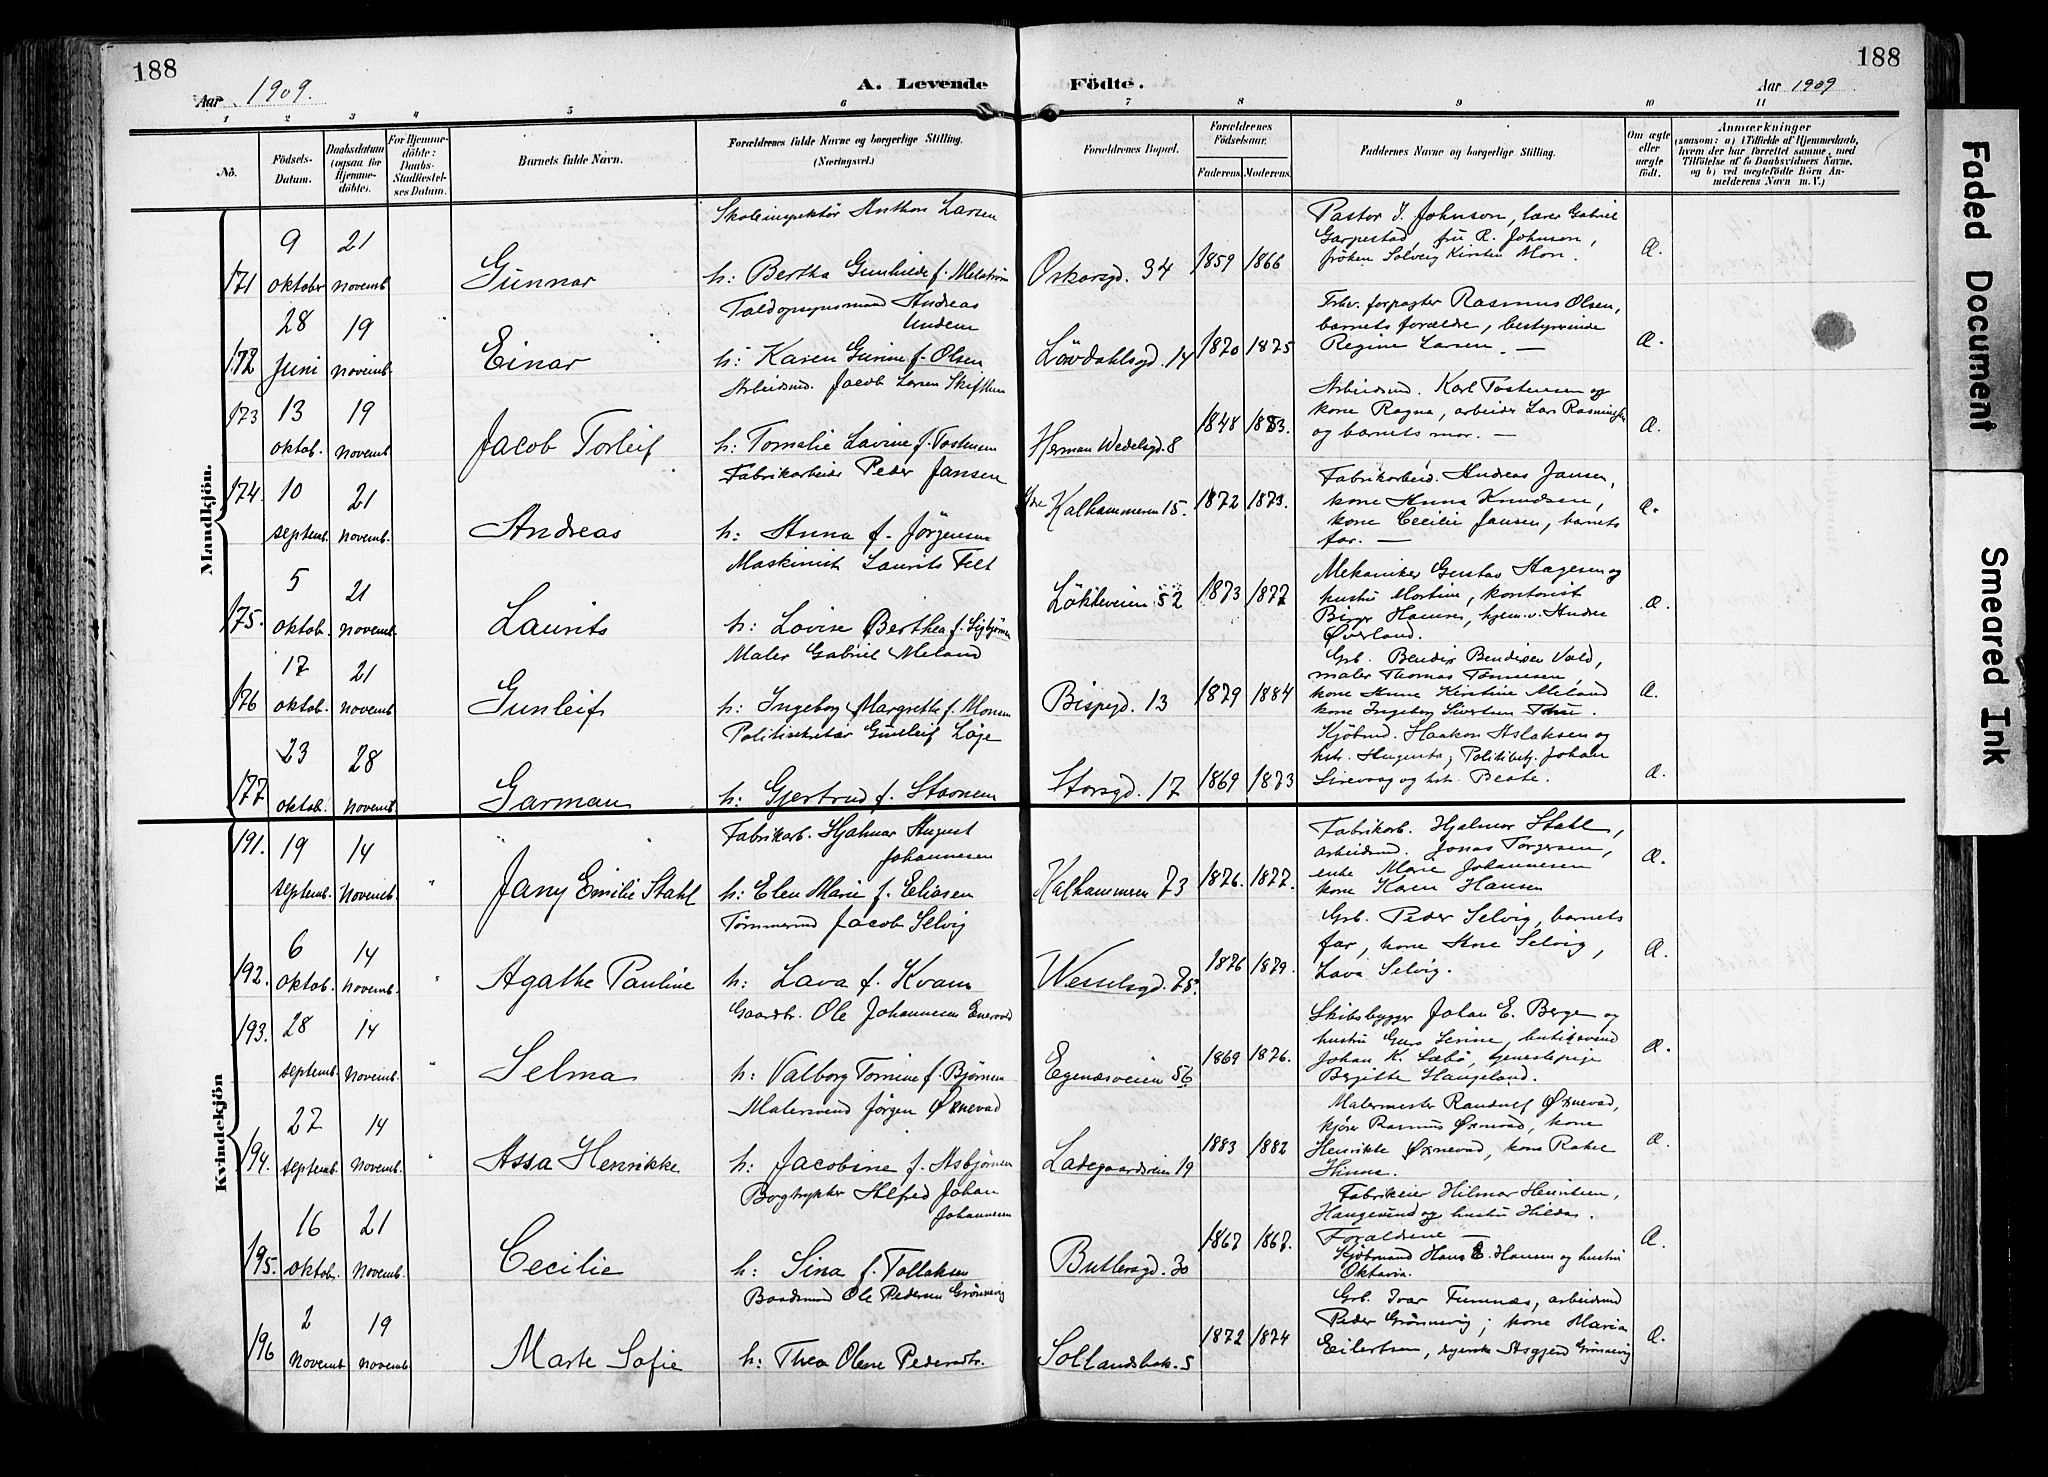 188
Aar 1909.
A. Levende
Födte.
Aar 1909
188
1 2 3 4 5 6 7 8 9 10 11
No.
Födsels-Datum.
Daabsdatum (ogsaa for Hjemmedöbte).
For Hjemmedöbte: Daabs-Stadfæstelses Datum.
Barnets fulde Navn.
Forældrenes fulde Navne og borgerlige Stilling. (Næringsvei.)
Forældrenes Bopæl.
Forældrenes Födselsaar.
Faderens. Moderens.
Faddernes Navne og borgerlige Stilling.
Om ægte eller uægte födt.
Anmærkninger
(saasom: a) i Tilfælde af Hjemmedaab, hvem der har forrettet samme, med Tilföielse af to Daabsvidners Navne, og b) ved uægtefödte Börn Anmelderens Navn m. V.)
Mandkjön.
171 9 oktober 21 novemb. Gunnar
Skoleinspektör Anthon Larsen
h: Bertha Gunhilde f.
Oskarsgd. 34 1859 1866
Pastor I. Johnson, lærer Gabriel
Garpestad, fru R. Johnson,
fröken Solveig Kirsten Mon.
Æ.
172 28 Juni 19 novemb. Einar
Toldopsynsmand Andreas
Undem
h: Karen Gurine f. Olsen
Lövdahlsgd. 14 1870 1875
Fhv. forpagter Rasmus Olsen,
barnets forældre, bestyrerinde
Regine Larsen. —
Æ.
173 13 oktob. 19 novemb Jacob Torleif
Arbeidsmd. Jacob Larsen
h: Tomalie Lavine f. Tostensen
Herman Wedelsgd. 8 1848 1883.
Arbeidsmd. Karl Tostensen og
kone Ragna, arbeider Lars
og barnets mor. —
Æ.
174. 10 septemb. 21 novemb. Andreas
Fabrikarbeider Peder Jansen
h: Anna f. Jörgensen
Kalhammeren 15. 1872 1873.
Fabrikarbeid. Andreas Jansen,
kone Anna Knudsen,
kone Cecilie Jansen, barnets
far. —
Æ.
175. 5 oktob. 21 novemb. Laurits
Maskinist Laurits Felt
h: Lovise Berthea f.
Lökkeveien 52 1873 1877
Mekaniker Gustav Aagesen og
hustru Martine, kontorist
Birger Hansen, hjem.v. Andrea
Øverland.
Æ.
176 17 oktob. 21 novemb Gunleif
Maler Gabriel Meland
h: Ingeborg Margrethe f. Monsen
Bispegd. 13 1879 1884
Grb. Bendix Bendixen Vold,
maler Thomas Tönnesen,
kone Anne Kirstine Meland
kone Ingeborg Sivertsen Thu.
Æ.
177 23 oktob. 28 novembt Garman
Politisekretær Gunleif Löge
h: Gjertrud f. Stornem
Storsgd. 17 1869 1873
Kjöbmd. Haakon Aslaksen og
hstr. Augusta, Politibetj. Johan
Sirevaag og hst. Beate.
Æ.
Kvindekjön
191. 19 septemb. 14 Novemb. " Jany Emilie Stahl
Fabrikarb. Hjalmar August
Johannesen
h: Elen Marie f. Eliasen
Kalhammeren 73 1876. 1877.
Fabrikarb. Hjalmar Stahl,
arbeidsmd. Jonas Torgersen,
enke Marie Johannesen
kone Karen Hansen
Æ.
192. 6 oktob. 14 novemb. " Agathe Pauline
Tömmermd Jacob Selvig
h: Lava f. Kvam
Wesselsgd. 75. 1876 1879.
Grb. Peder Selvig, barnets
far, kone Ane Selvig,
Lava Selvig.
Æ.
193. 28 septemb. 14 Novemb. " Selma
Gaardbr. Ole Johannesen
h: Valborg Tomine f. Björnsen
Egenæsveien 56 1869 1876.
Skibsbygger Johan E. Berge og
hustru Serine, butiksvend
Johan K. Sæbö, tjenestepige
Bergitte Haugeland.
Æ.
194. 27 septemb. 14 Novemb. " Assa Henrikke
Malersvend Jörgen Øxnevad
h: Jacobine f. Asbjörnsen
Ladegaardsveien 19 1883 1882
Malermester Randulf Øxnevad,
kjörer Rasmus Øxnevad, kone
Henrikke Øxnevad, kone Rakel
Hinna.
Æ.
195. 16 oktob. 21 Novemb. Cecilie
Bogtrykker Alfred Johan
Johannesen
h: Sina f. Tollaksen
Butlersgd. 30 1867 1867.
Fabrikeier Hilmar Henriksen,
Haugesund og hustru Hilda.
Forældrene —
Kjöbmand Hans E. Hansen og hustru
Oktavia.
Æ.
196 2 novemb 19 novemb. Marte Sofie
Baadsmnd Ole Pedersen Grönnevig
h: Thea Olene Pedersdtr.
Sollandsbak. 5 1872 1874
Grb. Ivar Furenæs, arbeidsmd
Peder Grönnevig, kone Maria
Eilertsen, syerske Asgjerd Grönnevig
Æ.
Faded Document
Smeared Ink